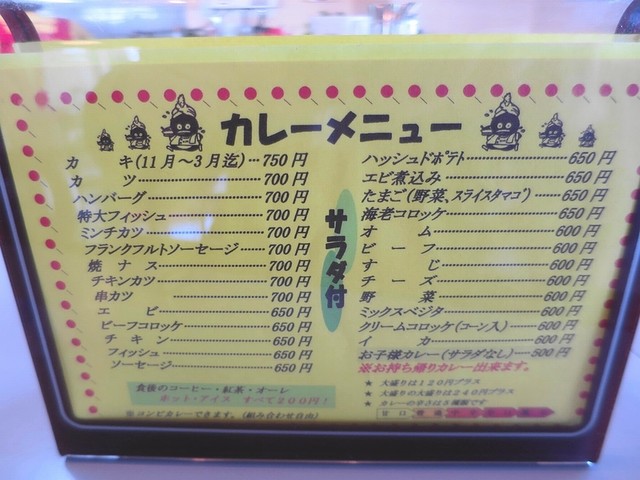 カレーメニュー
カ　キ(11月〜3月迄)…750円
カ　　ツ………700円
ハンバーグ………700円
特大フィッシュ………700円
ミンチカツ………700円
フランクフルトソーセージ……700円
焼　ナ　ス………700円
チキンカツ………700円
串カツ………700円
エ　　ビ………650円
ビーフコロッケ………650円
チ　キ　ン………650円
フィッシュ………650円
ソーセージ………650円
サラダ付
ハッシュドポテト………650円
エビ煮込み………650円
たまご(野菜、スライスタマゴ)………650円
海老コロッケ………650円
オ　　ム………600円
ビ　ー　フ………600円
す　　じ………600円
チ　ー　ズ………600円
野　　菜………600円
ミックスベジタ………600円
クリームコロッケ(コーン入)………600円
イ　　カ………600円
お子様カレー(サラダなし)……500円
※お持ち帰りカレー出来ます。
食後のコーヒー・紅茶・オーレ
ホット・アイス　すべて200円！
※コンビカレーできます。(組み合わせ自由)
★ 大盛りは120円プラス
★ 大盛りの大盛りは240円プラス
★ カレーの辛さは5種類です
甘口